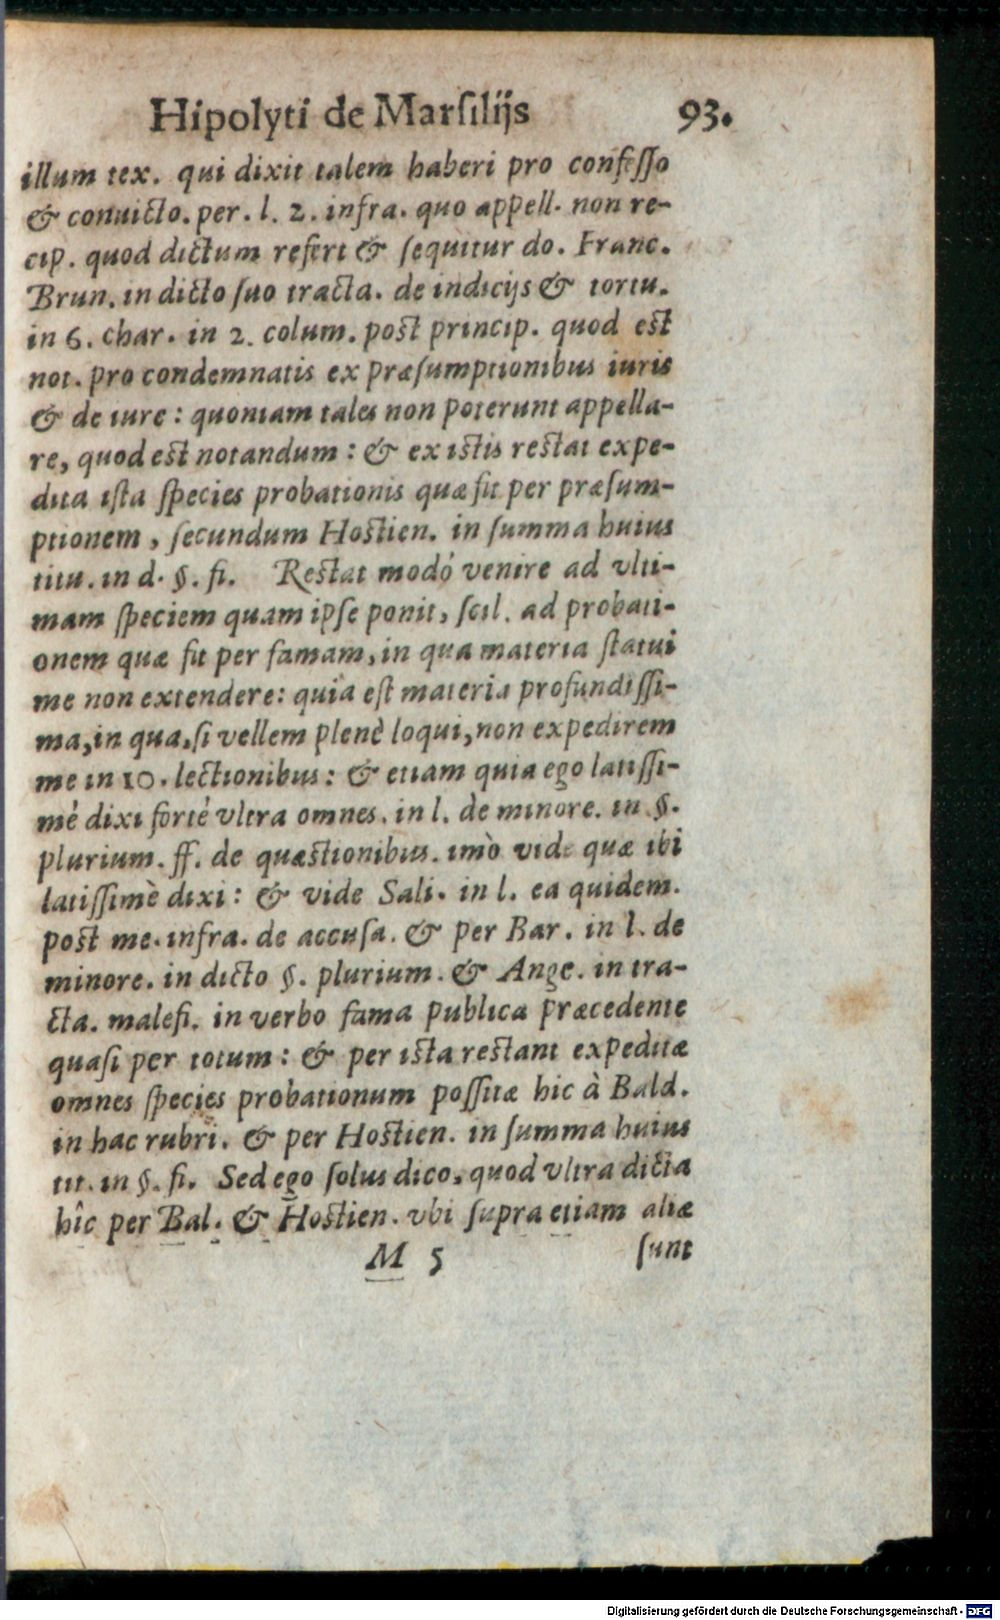 Hipolyti de Marsilijs 93.
illum tex. qui dixit talem haberi pro confesso
& conuicto. per. l. 2. infra. quo appell. non re-
cip. quod dictum refert & sequitur do. Franc.
Brun. in dicto suo tracta. de indicijs & tortu.
in 6. char. in 2. colum. post princip. quod est
not. pro condemnatis ex præsumptionibus iuris
& de iure: quoniam tales non poterunt appella-
re, quod est notandum: & ex istis restat expe-
dita ista species probationis quæ fit per præsum-
ptionem, secundum Hostien. in summa huius
titu. in d. §. fi. Restat modó venire ad vlti-
mam speciem quam ipse ponit, scil. ad probati-
onem quæ fit per famam, in qua materia statui
me non extendere: quia est materia profundissi-
ma, in qua, si vellem plenè loqui, non expedirem
me in 10. lectionibus: & etiam quia ego latissi-
mè dixi fortè vltra omnes. in l. de minore. in §.
plurium. ff. de quæstionibus. imò vide quæ ibi
latissimè dixi: & vide Sali. in l. ea quidem.
post me. infra. de accusa. & per Bar. in l. de
minore. in dicto §. plurium. & Ange. in tra-
cta. malefi. in verbo fama publica præcedente
quasi per totum: & per ista restant expeditæ
omnes species probationum possitæ hic à Bald.
in hac rubri. & per Hostien. in summa huius
tit. in §. fi. Sed ego solus dico, quod vltra dicta
hîc per Bal. & Hostien. vbi supra etiam aliæ
M 5 sunt
Digitalisierung gefördert durch die Deutsche Forschungsgemeinschaft - DFG